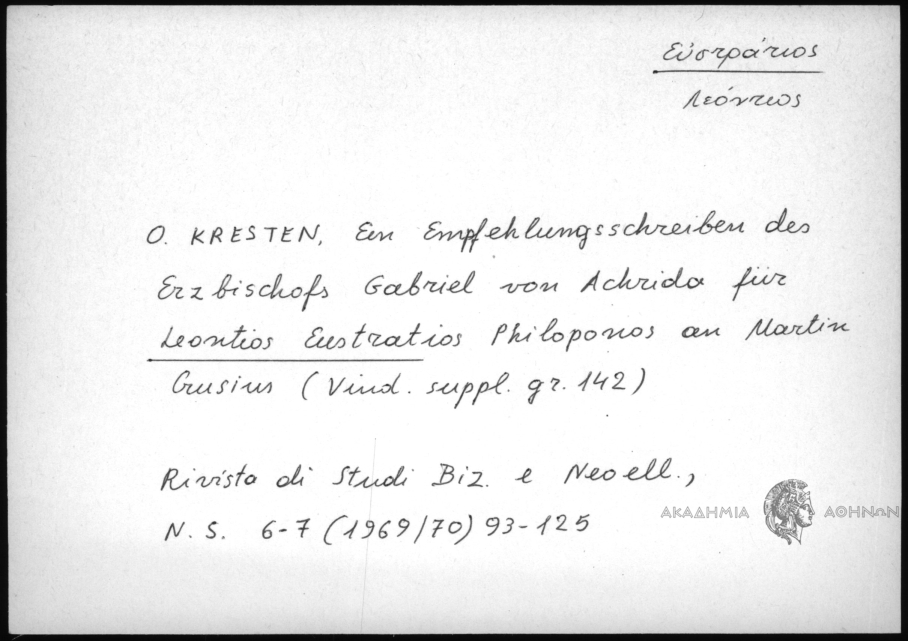 Εὐστράτιος
Λεόντιος
O. KRESTEN, Ein Empfehlungsschreiben des
Erzbischofs Gabriel von Achrida für
Leontios Eustratios Philoponos an Martin
Crusius (Vind. suppl. gr. 142)
Rivista di Studi Biz. e Neoell.,
N. S. 6-7 (1969/70) 93-125
ΑΚΑΔΗΜΙΑ ΑΘΗΝΩΝ